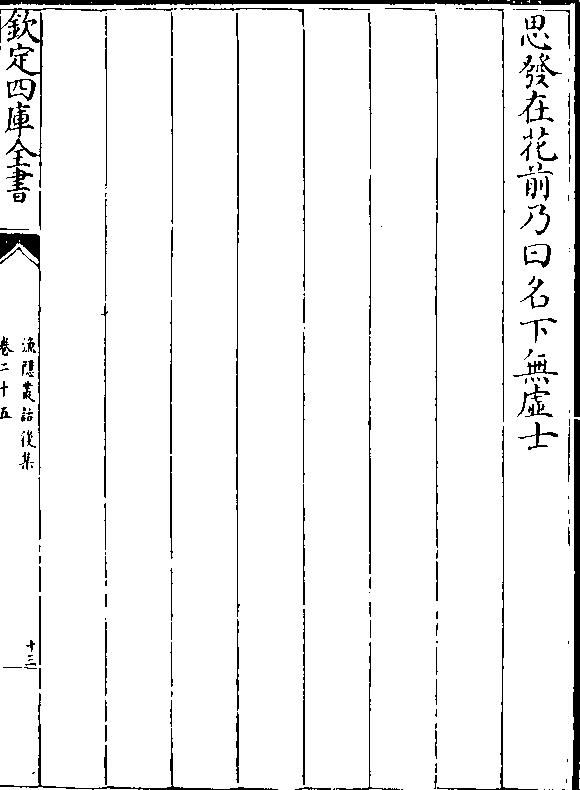 思發在花前乃曰名下無虛士
欽定四庫全書
漁隱叢話後集
卷二十五
十三